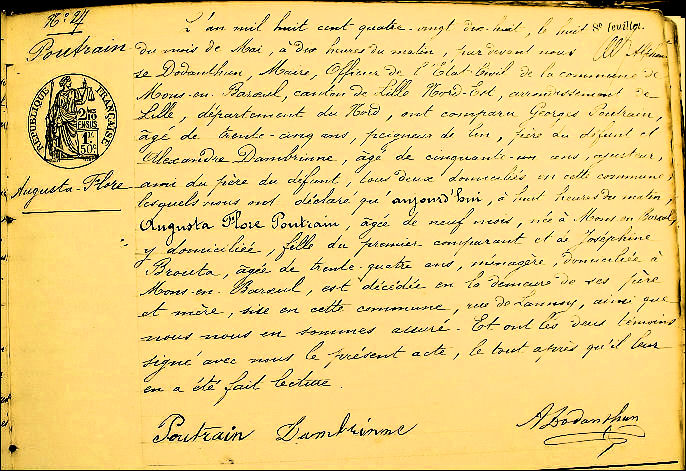 N° 27
Poutrain
RÉPUBLIQUE FRANÇAISE
Augusta-Flore
8e feuillet
L'an mil huit cent quatre-vingt dix-huit, le huit
du mois de Mai, à dix heures du matin, par devant nous
Dodanthun, Maire, Officier de l'État-Civil de la commune de
Mons-en-Barœul, canton de Lille Nord-Est, arrondissement de
Lille, département du Nord, ont comparu Georges Poutrain,
âgé de trente-cinq ans, peigneur de lin, père du défunt et
Alexandre Dambrinne, âgé de cinquante-un ans, ajusteur,
ami du père du défunt, tous deux domiciliés en cette commune,
lesquels nous ont déclaré qu'aujourd'hui, à huit heures du matin,
Augusta Flore Poutrain, âgée de neuf mois, née à Mons en Barœul,
y domiciliée, fille du premier comparant et de Joséphine
Brouta, âgée de trente-quatre ans, ménagère, domiciliée à
Mons-en-Barœul, est décédée en la demeure de ses père
et mère, sise en cette commune, rue de Lannoy, ainsi que
nous nous en sommes assuré. Et ont les deux témoins
signé avec nous le présent acte, le tout après qu'il leur
en a été fait lecture.
Poutrain Dambrinne ADodanthun